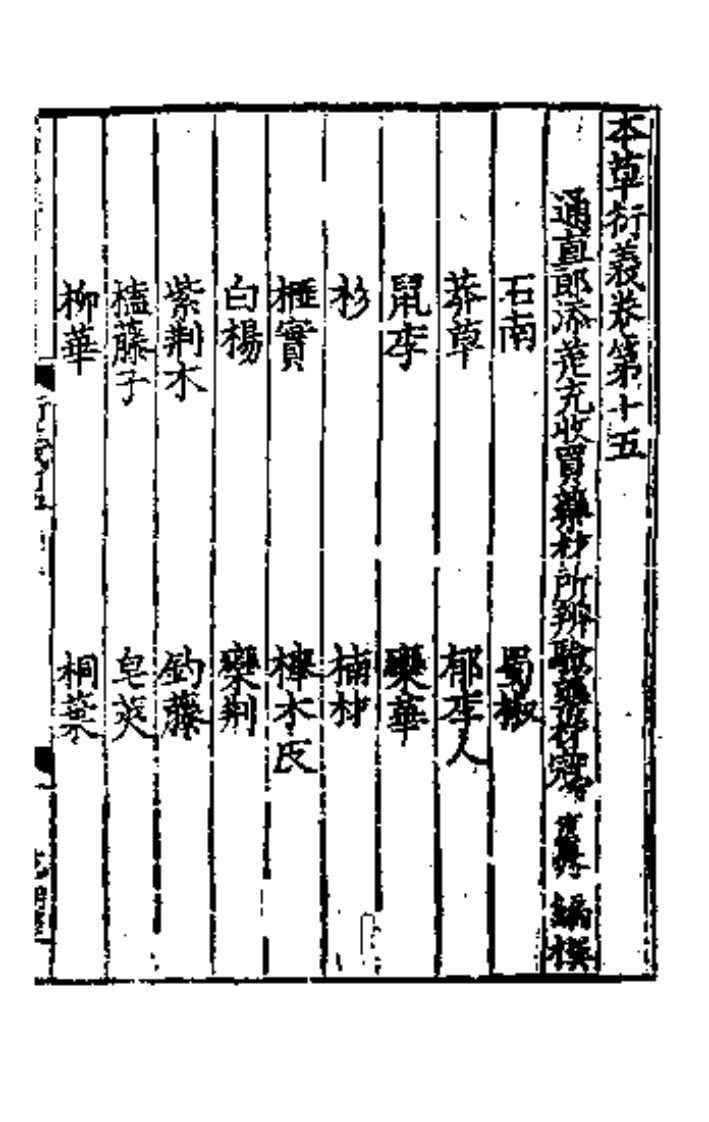 本草衍義卷第十五
通直郎添差充收買藥材所辨驗藥材寇宗奭編撰
石南 蜀椒
莽草 郁李人
鼠李 欒華
杉 楠材
榧實 榉木皮
白楊 欒荆
紫荆木 釣藤
榼藤子 皂莢
柳華 桐葉